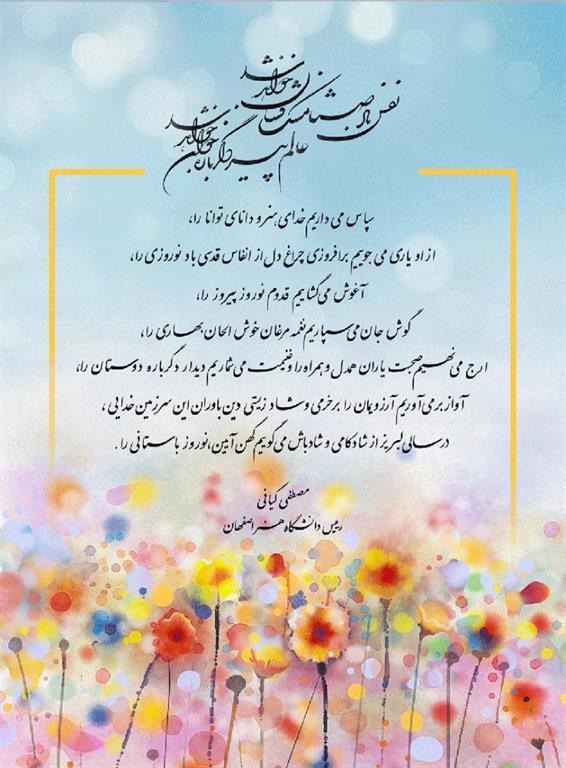 نفس باد صبا مشک فشان خواهد شد
عالم پیر دگرباره جوان خواهد شد
سپاس می داریم خدای هنر و دانای توانا را،
از او یاری می جوییم برافروزی چراغ دل از انفاس قدسی باد نوروزی را،
آغوش می گشاییم قدوم نوروز پیروز را،
گوش جان می سپاریم نغمه مرغان خوش الحان بهاری را،
ارج می نهیم صحبت یاران همدل و همراه را و غنیمت می شماریم دیدار دگرباره دوستان را،
آواز برمی آوریم آرزویمان را برخرمی و شاد زیستی دین باوران این سرزمین خدایی،
در سالی لبریز از شادکامی و شادباش می گوییم کهن آیین، نوروز باستانی را.
مصطفی کیانی
رییس دانشگاه هنر اصفهان